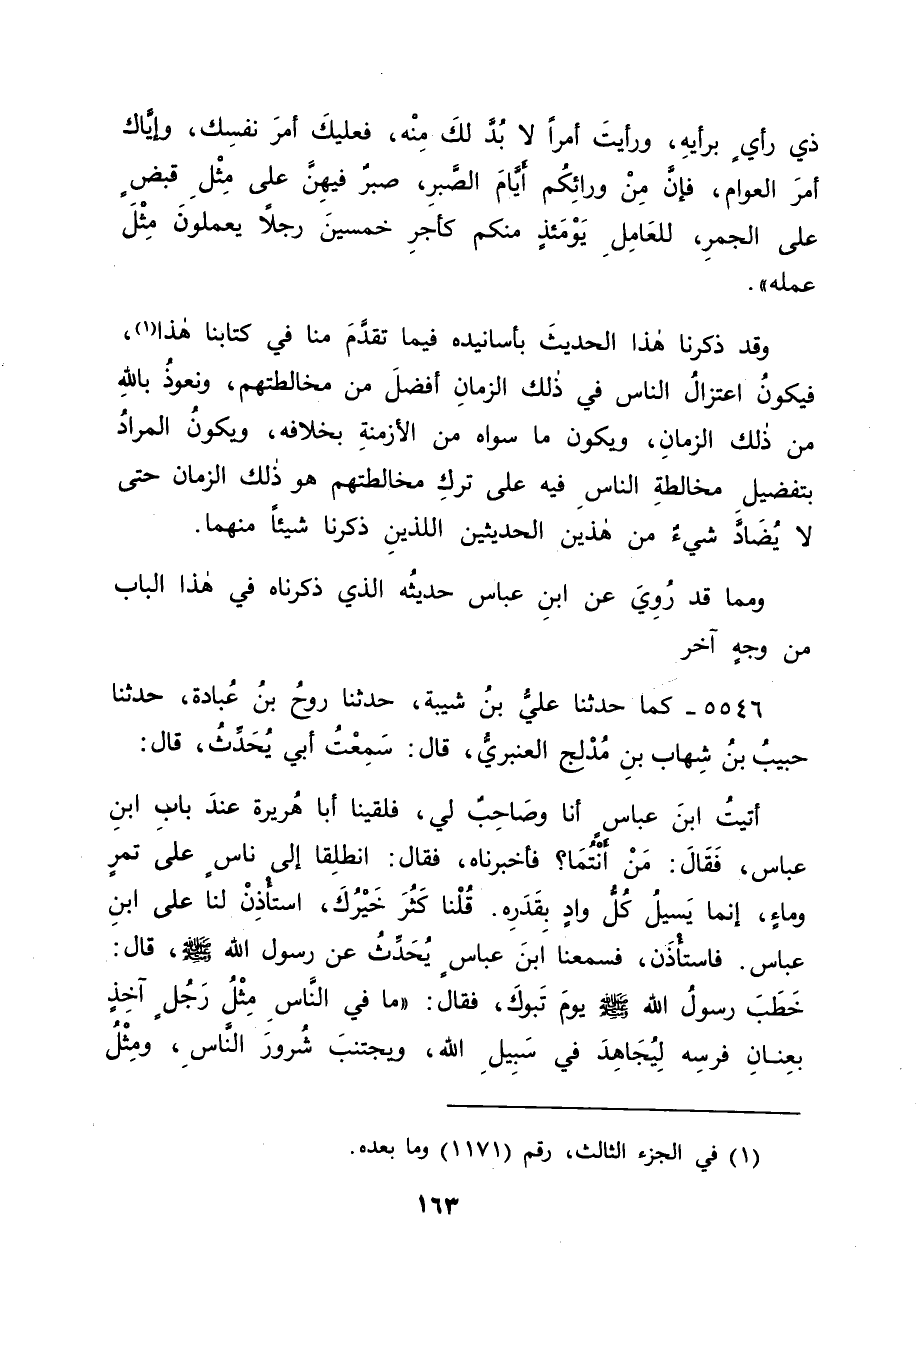 ذي رأيٍ برأيِهِ، ورأيتَ أمراً لا بُدَّ لكَ مِنْه، فعليكَ أمرَ نفسِك، وإيَّاك
أمرَ العوام، فإنَّ مِنْ ورائِكُم أيَّامَ الصَّبرِ، صبرٌ فيهِنَّ على مِثْلِ قبضٍ
على الجمرِ، للعَامِلِ يَوْمَئذٍ منكم كأجرِ خمسينَ رجلاً يعملونَ مِثْلَ
عمله».
وقد ذكرنا هٰذا الحديثَ بأسانيده فيما تقدَّمَ منا في كتابنا هٰذا(١)،
فيكونُ اعتزالُ الناس في ذٰلك الزمانِ أفضلَ من مخالطتهم، ونعوذُ باللهِ
من ذٰلك الزمانِ، ويكون ما سواه من الأزمنةِ بخلافه، ويكونُ المرادُ
بتفضيلِ مخالطةِ الناسِ فيه على تركِ مخالطتهم هو ذٰلك الزمان حتى
لا يُضَادَّ شيءٌ من هٰذين الحديثين اللذينِ ذكرنا شيئاً منهما.
ومما قد رُوِيَ عن ابنِ عباس حديثُه الذي ذكرناه في هٰذا الباب
من وجهٍ آخر
٥٥٤٦ - كما حدثنا عليُّ بنُ شيبة، حدثنا روحُ بنُ عُبادة، حدثنا
حبيبُ بنُ شِهاب بنِ مُدْلِج العنبريُّ، قال: سَمِعْتُ أبي يُحَدِّثُ، قال:
أتيتُ ابنَ عباسٍ أنا وصَاحِبٌ لي، فلقينا أبا هُريرة عندَ بابِ ابنِ
عباس، فَقَالَ: مَنْ أَنْتُمَا؟ فأخبرناه، فقال: انطلِقا إلى ناسٍ على تمرٍ
وماءٍ، إنما يَسيلُ كُلُّ وادٍ بِقَدَرِهِ. قُلْنا كَثُرَ خَيْرُكَ، استأْذِنْ لنا على ابنِ
عباس. فاستأْذَن، فسمعنا ابنَ عباسٍ يُحَدِّثُ عن رسول الله ﷺ، قال:
خَطَبَ رسولُ الله ﷺ يومَ تَبوكَ، فقال: «ما في النَّاسِ مِثْلُ رَجُلٍ آخِذٍ
بِعِنانِ فرسِه لِيُجَاهِدَ في سَبِيلِ الله، ويجتنبَ شُرورَ النَّاسِ، ومِثْلُ
(١) في الجزء الثالث، رقم (١١٧١) وما بعده.
١٦٣